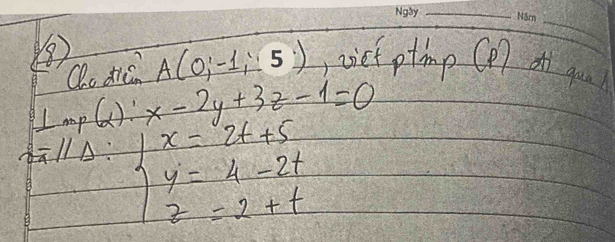 Ngày Năm
(8)
Cho điểm A(0;-1; 5), viết ptmp (P) đi qua A
⊥ mp(α): x - 2y + 3z - 1 = 0
// Δ: { x = 2t + 5
y = 4 - 2t
z = 2 + t